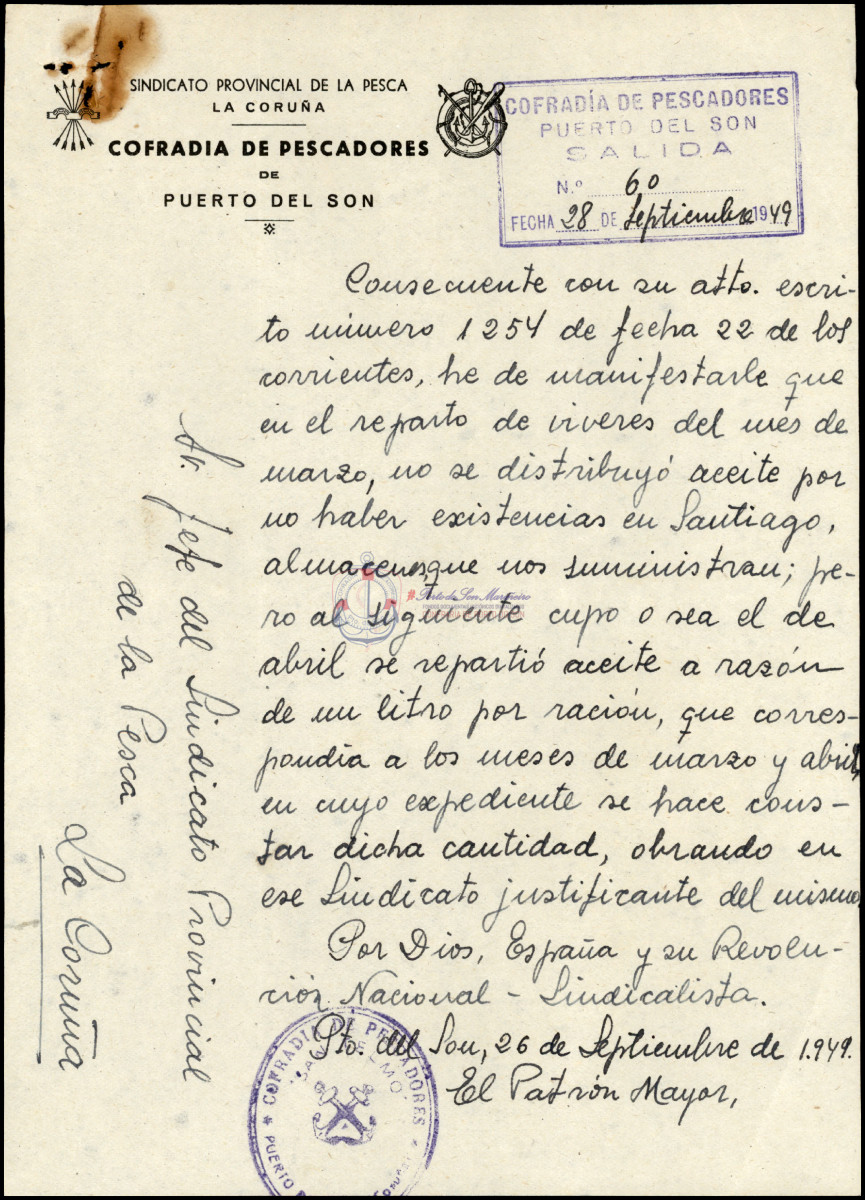 SINDICATO PROVINCIAL DE LA PESCA
LA CORUÑA
COFRADIA DE PESCADORES
DE
PUERTO DEL SON
COFRADÍA DE PESCADORES
PUERTO DEL SON
SALIDA
N.º 60
FECHA 28 DE Septiembre 1949
Consecuente con su atto. escri-
to número 1254 de fecha 22 de los
corrientes, he de manifestarle que
en el reparto de viveres del mes de
marzo, no se distribuyó aceite por
no haber existencias en Santiago,
almacenes, que nos suministran; pe-
ro al siguiente cupo o sea el de
abril se repartió aceite a razón
de un litro por ración, que corres-
pondía a los meses de marzo y abril,
en cuyo expediente se hace cons-
tar dicha cantidad, obrando en
ese Sindicato justificante del mismo.
Por Dios, España y su Revolu-
ción Nacional-Sindicalista.
Pto. del Son, 26 de Septiembre de 1.949.
El Patrón Mayor,
Sr. Jefe del Sindicato Provincial
de la Pesca
La Coruña
#Porto do Son Mariñeiro
COFRADIA DE PESCADORES
PUERTO